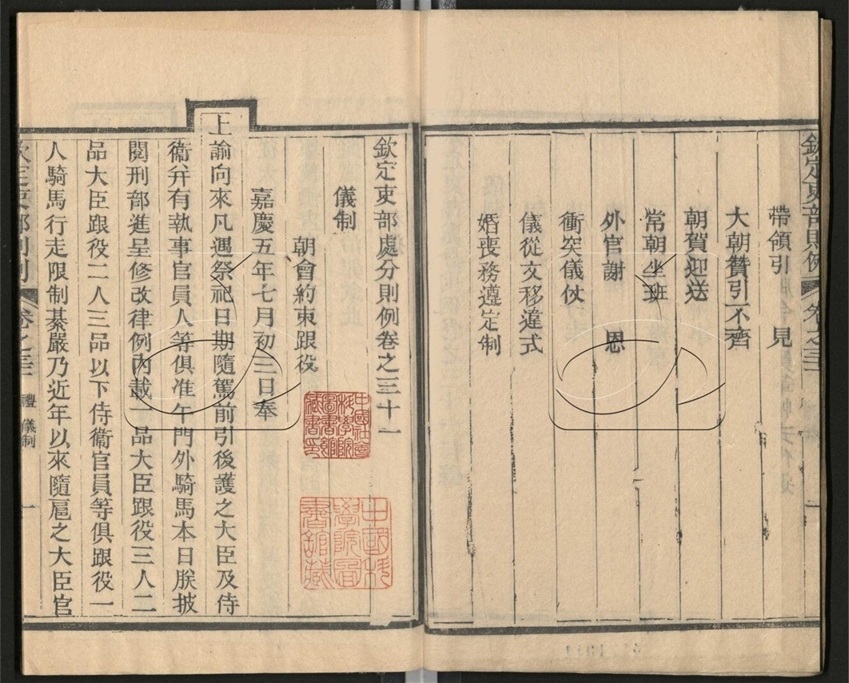 欽定吏部則例
帶領引 見
大朝贊引不齊
朝賀迎送
常朝坐班
外官謝 恩
衝突儀仗
儀從文移違式
婚喪務遵定制
欽定吏部處分則例卷之三十一
儀制
朝會約束跟役
嘉慶五年七月初三日奉
上諭向來凡遇祭祀日期隨駕前引後護之大臣及侍
衞幷有執事官員人等俱准午門外騎馬本日朕披
閱刑部進呈修改律例內載一品大臣跟役三人二
品大臣跟役二人三品以下侍衞官員等俱跟役一
人騎馬行走限制綦嚴乃近年以來隨扈之大臣官
欽定吏部則例 卷之三十一 禮 儀制 一